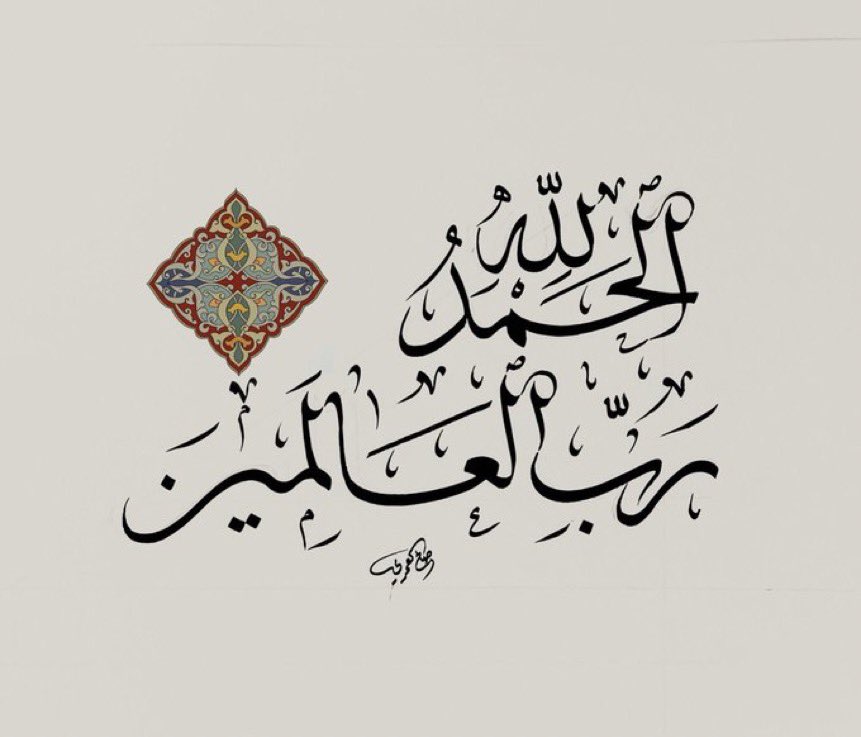 الْحَمْدُ لِلّٰهِ
رَبِّ الْعَالَمِينَ